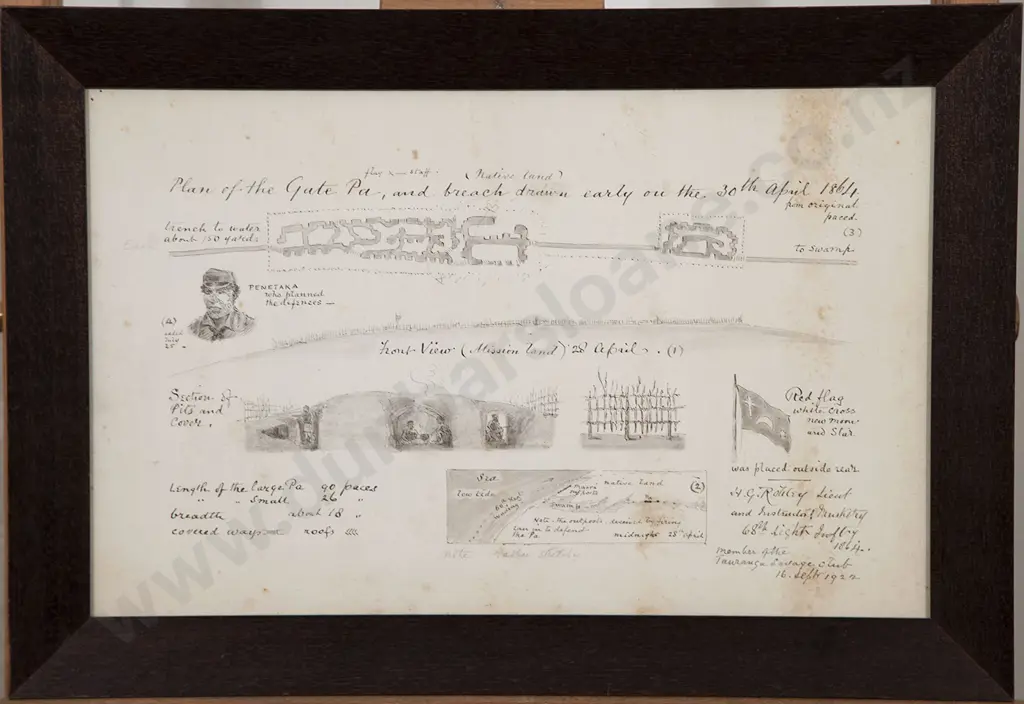 flag & staff. (Native land)
Plan of the Gate Pa, and breach drawn early on the 30th April 1864
from original
paced.
(3)
trench to water
about 150 yards
to swamp
PENETAKA
who planned
the defences —
(4)
July
25
Front View (Mission land) 28 April. (1)
Section of
Pits and
Cover.
Red flag
white cross
new moon
and Star
was placed outside rear
Length of the large Pa 90 paces
" " Small 26 "
breadth about 18 "
covered ways roofs
Sea
low tide
(2)
native land
maori
outposts
swamp
Note. the outposts deceived by firing
ran in to defend
the Pa.
midnight 28th April
note
H.G. Robley Lieut
and Instructor of Musketry
68th Light Inftry
1864.
member of the
Tauranga Savage Club
16. Sept 1922
www.dunbarsloane.co.nz